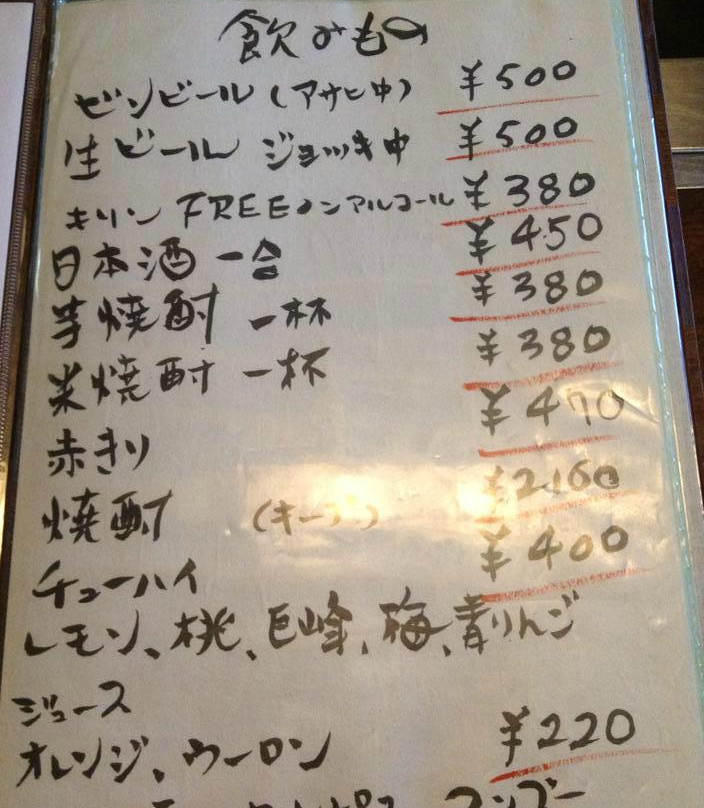 飲みもの
ビンビール (アサヒ中) ¥500
生ビール ジョッキ中 ¥500
キリン FREEノンアルコール ¥380
日本酒 一合 ¥450
芋焼酎 一杯 ¥380
米焼酎 一杯 ¥380
赤きり ¥470
焼酎 (キープ) ¥2,160
チューハイ ¥400
レモン、桃、巨峰、梅、青りんご
ジュース
オレンジ、ウーロン ¥220